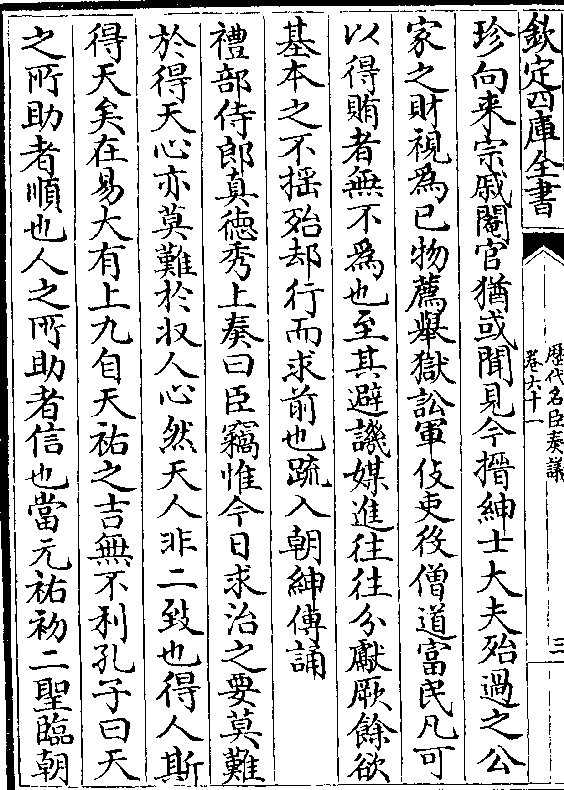 欽定四庫全書
歷代名臣奏議
卷六十一
三
珍向来宗戚閹官猶或聞見今搢紳士大夫殆過之公
家之財視為已物薦舉獄訟軍伎吏役僧道富民凡可
以得賄者無不為也至其避譏媒進往往分獻厥餘欲
基本之不揺殆却行而求前也疏入朝紳傳誦
禮部侍郎真徳秀上奏曰臣竊惟今日求治之要莫難
於得天心亦莫難於収人心然天人非二致也得人斯
得天矣在易大有上九自天祐之吉無不利孔子曰天
之所助者順也人之所助者信也當元祐初二聖臨朝